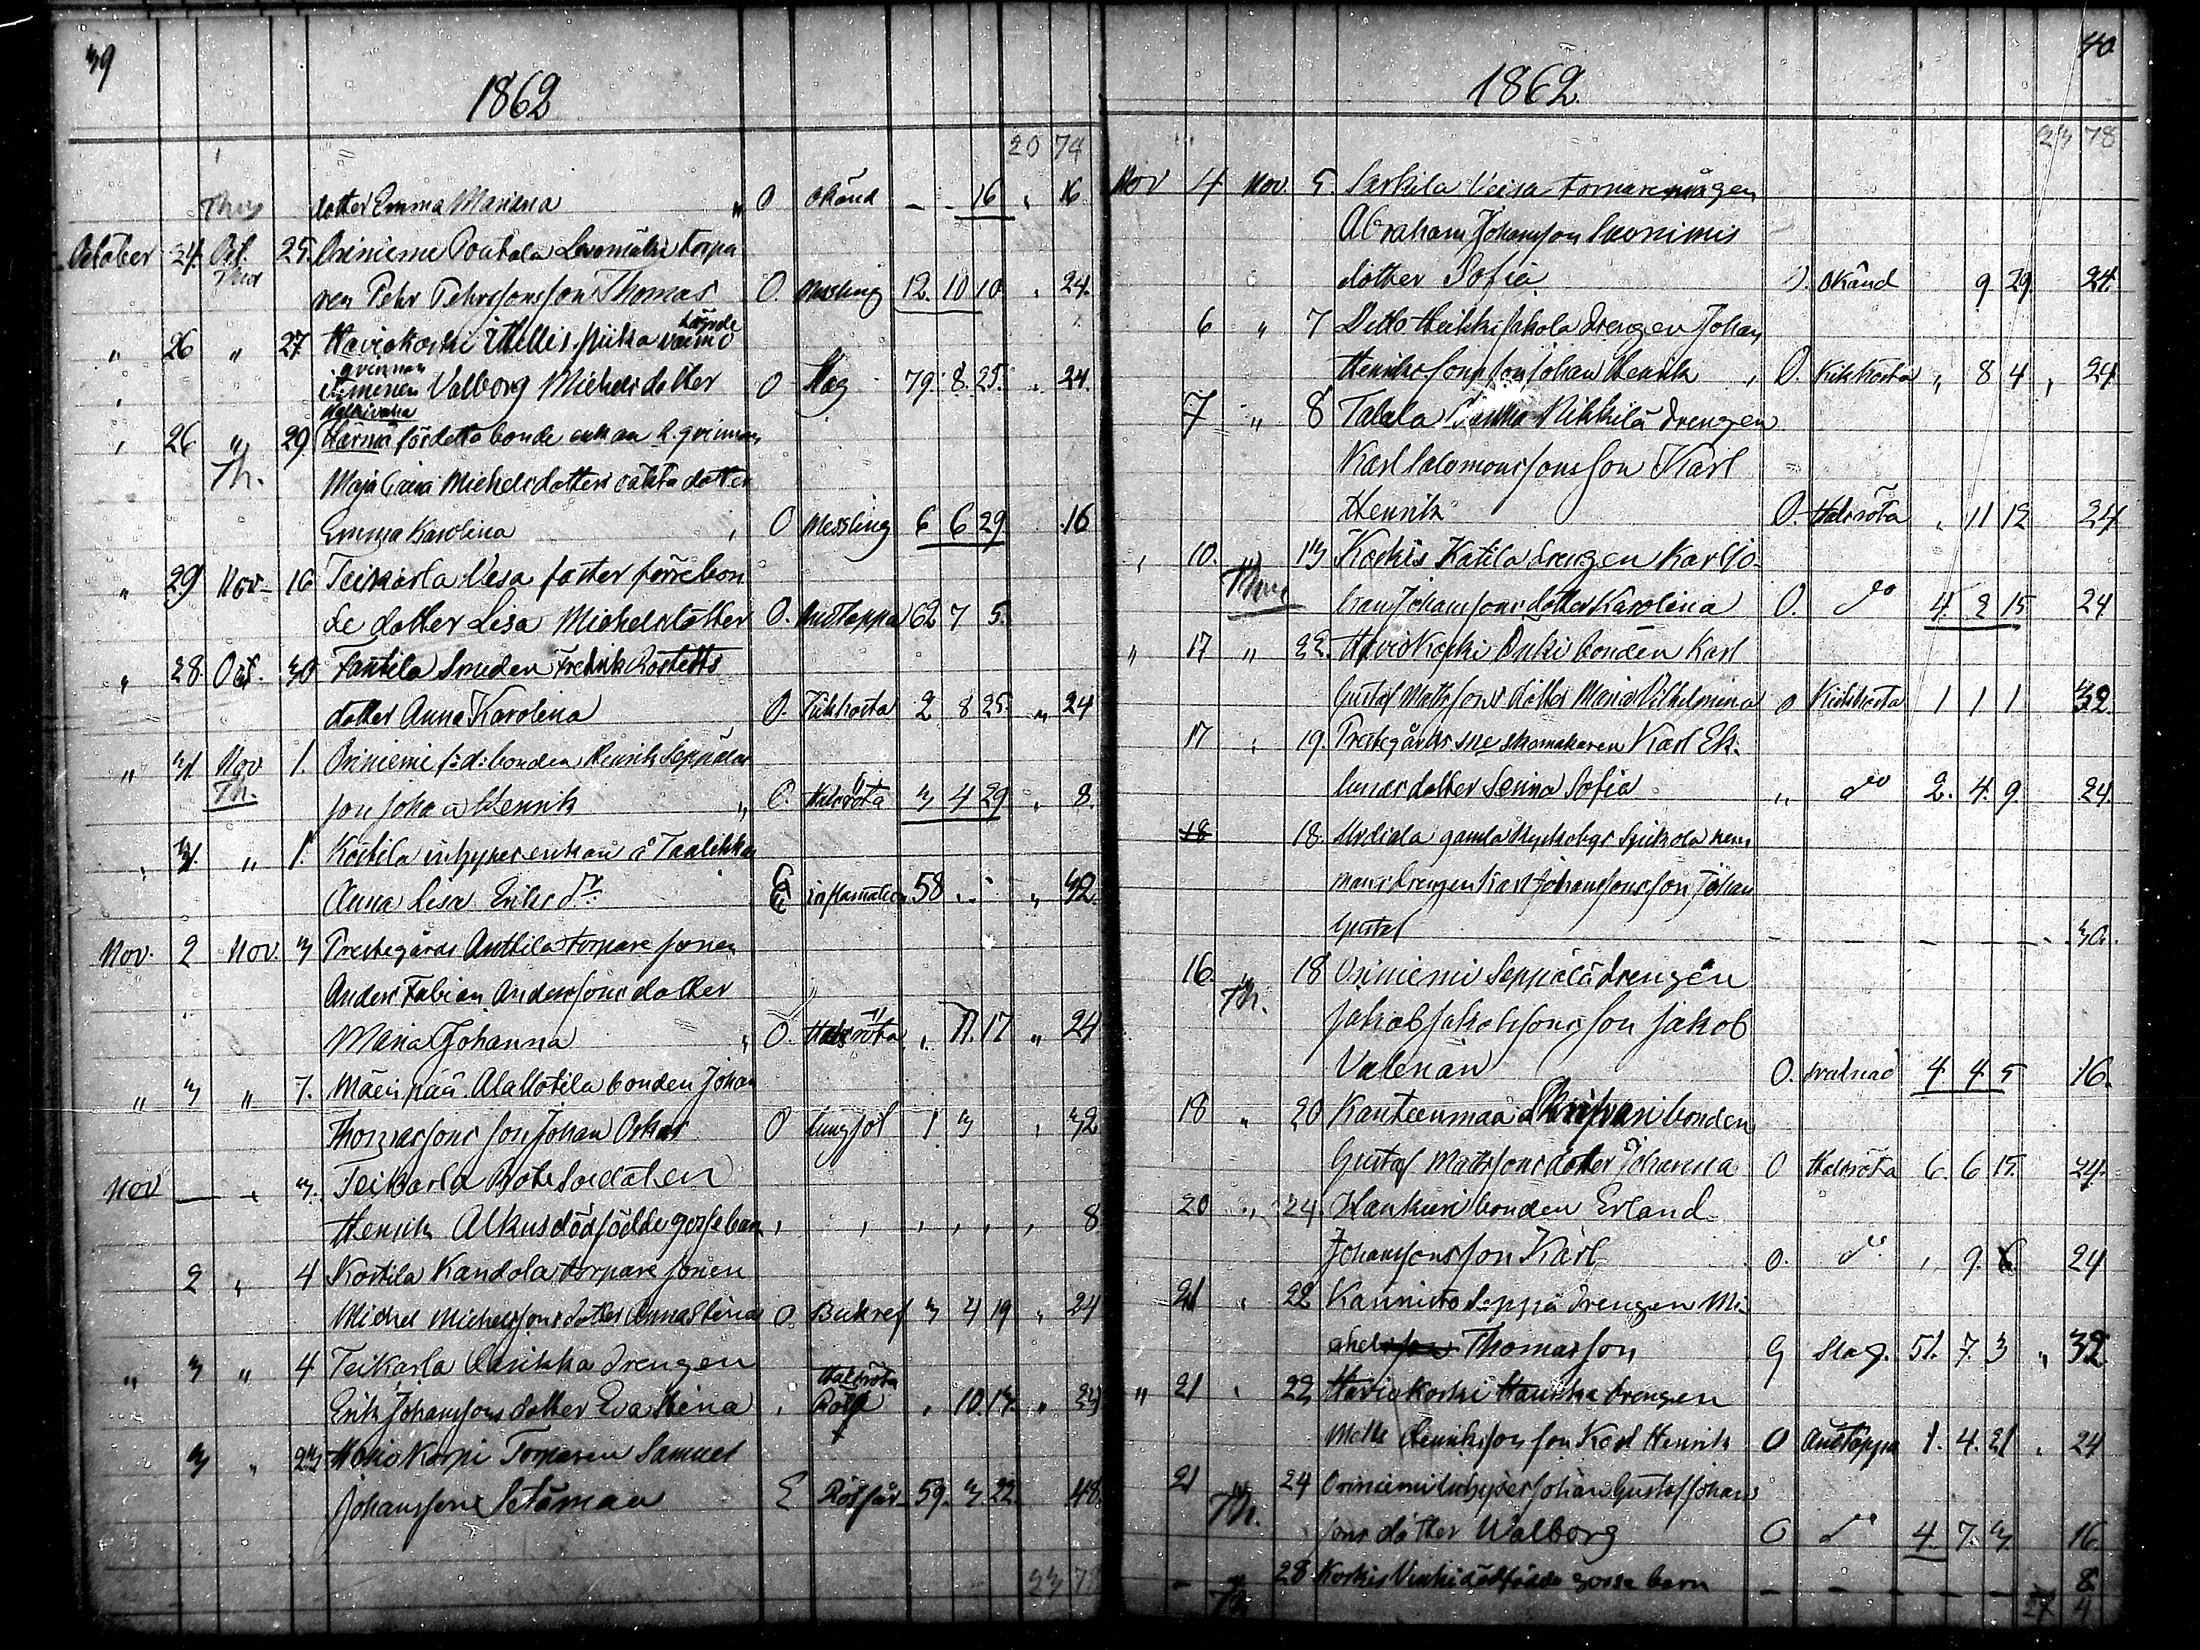 39
1862
20 74
Thur dotter Emma Mariana " O Okänd - - 16 " 16
October 24. Oct. 25. Oriniemi Poutala Levomäki torpa
Thur ren Pehr Pehrssons son Thomas O. Messling 12. 10 10 " 24.
" 26 " 27. Haviokoski Ihellis hörde
qvinnan Valborg Michelsdotter O Slag 79. 8. 25. " 24.
" 26 " 29 Härmä fördetta bonde enkan h. qvinnan
Th. Maja Caisa Michelsdotters oäkta dotter
Emma Karolina " O Messling 6 6 29 16
" 29 Nov 16 Teikarla Uesa förre bon
de dotter Lisa Michelsdotter O. Andtäppa 62 7 5.
" 28. Oct. 30 Fantila Smeden Fredrik Rostedts
dotter Anna Karolina O. Kikhosta 2 8 25. " 24
" 31 Nov 1. Oriniemi f: d: bonden Henrik Seppälas
Th. son Johan Henrik " O. Halsröta 3 4 29 " 8.
" 31. " 1. Kostila inhyses enkan å Taalikka
Anna Lisa Eriksdr inflamation 58 " " 32.
Nov. 2 Nov. 3 Prestegårds Anttila torpare sonen
Anders Fabian Anderssons dotter
Maria Johanna " O. Halsröta " 11. 17 " 24
" 3 " 7. Mäenpää Alakotila bonden Johan
Thomassons son Johan Oskar O lungsot 1. 3 " 32
Nov — " 3. Teikarla Rote Soldaten
Henrik Alkus dödfödde gossebarn " " " " " " 8
2 " 4 Kostila Kandola torpare sonen
Michel Michelssons dotter Anna Stina O. Bukref 3 4 19 " 24
" 3 " 4 Teikarla drengen Halsröta
Erik Johanssons dotter Eva Stina " " 10. 13. " 24
3 " 23 Haviokoski Torparen Samuel
Johansson E Rötfeb. 59. 3 22 48.
23 78
40
1862.
23 78
Nov 4 Nov. 5. Sarkila Veisa Torparemågen
Abraham Johansson
dotter Sofia O. Okänd 9 29. 24.
6 " 7 Ditto Heikki Jakola drengen Johan
Henrikssons son Johan Henrik " O. Kikhosta " 8 4 " 24
7 " 8 Talala Nikkilä drengen
Karl Salomonssons son Karl
Henrik O. Halsröta " 11 12 24
" 10. 13 Koskis Katila drengen Karl Jo-
Thur han Johanssons dotter Karolina O. do 4 2 15 24
" 17 " 22. Haviokoski Onki bonden Karl
Gustaf Matssons dotter Maria Vilhelmina O Kikhosta 1 1 1 32.
17 " 19. Prestegårds skomakaren Karl Ek-
lunds dotter Senna Sofia " do 2. 4. 9. 24.
18 18. gamla
mans drengen Karl Johanssons son Johan
Gustaf - - - - - 30.
16. 18 Oriniemi Seppälä drengen
Th. Jakob Jakobssons son Jakob
Valerian O. 4 4 5 16.
18 " 20 Kanteenmaa Skrifvari bonden
Gustaf Matssons dotter Johanna O Halsröta 6. 6 15. 24.
20 " 24 Hankuri bonden Erland
Johanssons son Karl O. do " 9. 6 24
21 " 22 Kannisto Seppä drengen Mi-
chel Thomasson G Slag. 51. 7. 3 " 32.
" 21 " 22 Haviokoski Hauska drengen
Matts Henriksson son Karl Henrik O Andtäppa 1. 4. 21 " 24
21 24 Oriniemi inhyses Johan Gustaf Johans
Th. sons dotter Walborg O do 4. 7. 3. 16
- " 28. Koskis dödfödde gosse barn - - - - - 8.
Th 27 4